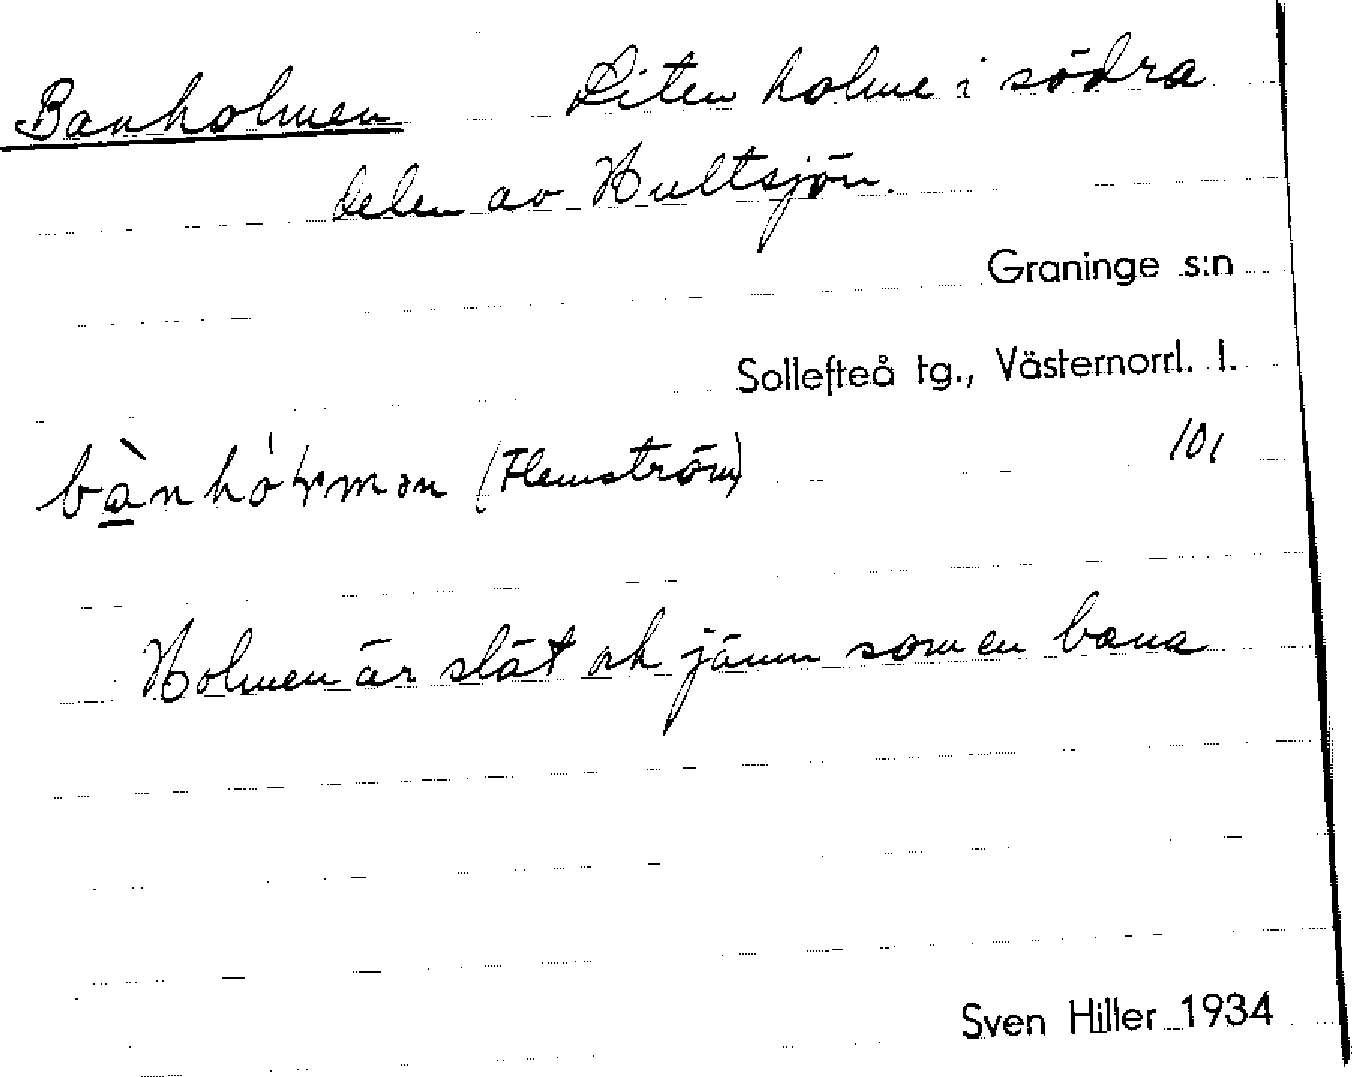 Banholmen Liten holme i södra
delen av Hultsjön.
Graninge s:n
Sollefteå tg., Västernorrl. l.
101
(Flemström)
Holmen är slät och jämn som en bana
Sven Hiller 1934